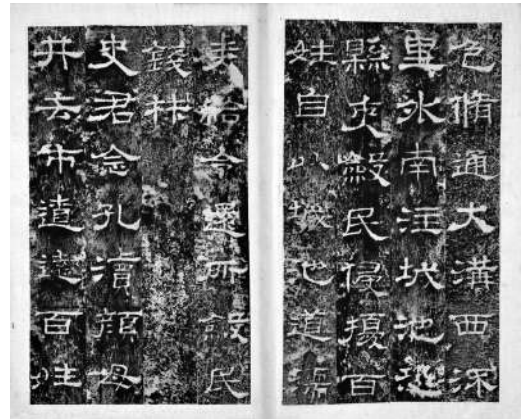 色脩通大溝西流
里外南注城池恐
縣吏斂民侵擾百
姓自以城池道濡
麦給令還所斂民
錢材
史君念孔瀆顏母
井去市遼遠百姓